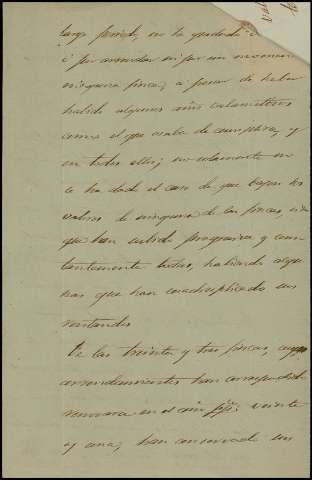 largo period, en la quedado
ó por arrendar ni por un momento
ninguna finca; a pesar de haber
habido algunos años calamitosos
como el que acaba de cumplirse, y
en todos ellos; no solamente no
se ha dado el caso de que bajen los
valores de ninguna de las fincas, sino
que han subido progresiva y cons
tantemente todas, habiendo algu
nas que han cuadruplicado sus
rentandos
De las treinta y tres fincas, cuyos
arrendamientos han correspondido
renovarse en el año veinte
y una, han conservado su